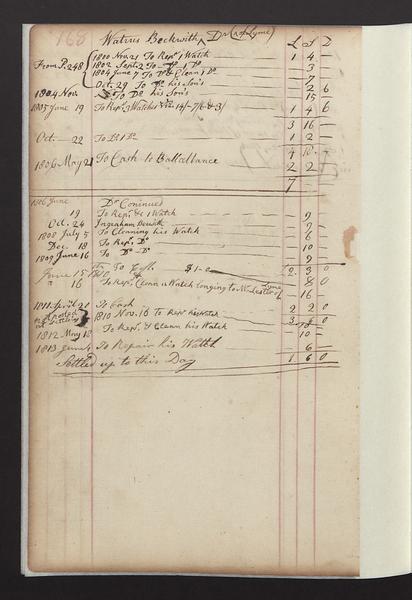 168 Watrus Beckwith Dr (of Lyme)
£ S D
From P. 248 1800 Nov 21 To Repr 1 Watch 1 4
1802 Sept 2 To Do 1 Do 3
1804 June 7 To Do & Clean 1 Do 7
Oct. 29 To Do his Son's 2 6
1804 Nov. To Do his Son's 15
1805 June 19 To Repr 3 Watches 14/- 7/6 & 3/ 1 4 6
3 16
Oct. 22 To Do 1 Do 1 2
4 18
1806 May 21 To Cash to Ballallance 2 2
7
1806 June Dr Coninued
19 To Repr & 1 Watch 9
Oct. 24 7
1808 July 5 To Cleaning his Watch 6
Dec. 18 To Repr Do 10
1809 June 16 To D. D. 9
June 15 To Cash $1-0 2 3 0
" 16 To Repr Clean a Watch longing to Lyme 8 0
16
1811 April 21 To Cash 2 2 0
1810 Nov. 16 To Repr his Watch 3 0
1812 May 18 To Repr & Clean his Watch 10
1813 June 4 To Repair his Watch 6
Settled up to this Day 1 6 0